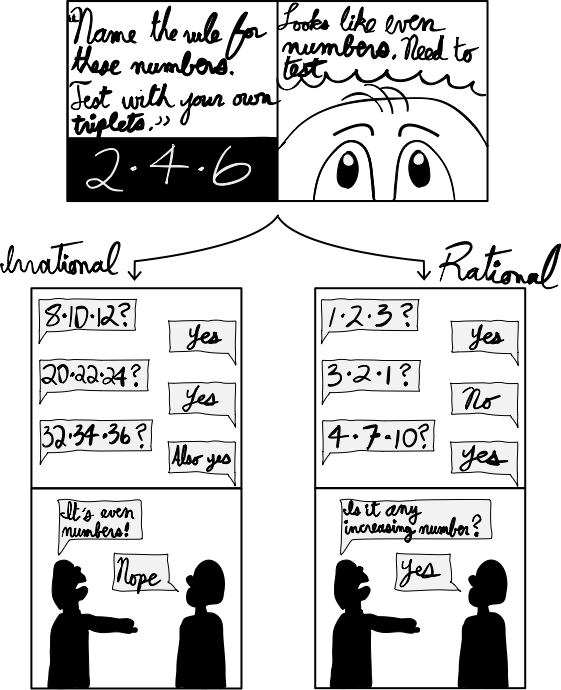 "Name the rule for
these numbers.
Test with your own
triplets."
2·4·6
Looks like even
numbers. Need to
test
Irrational
8·10·12?
Yes
20·22·24?
Yes
32·34·36?
Also yes
It's even
numbers!
Nope
Rational
1·2·3?
Yes
3·2·1?
No
4·7·10?
Yes
Is it any
increasing number?
Yes